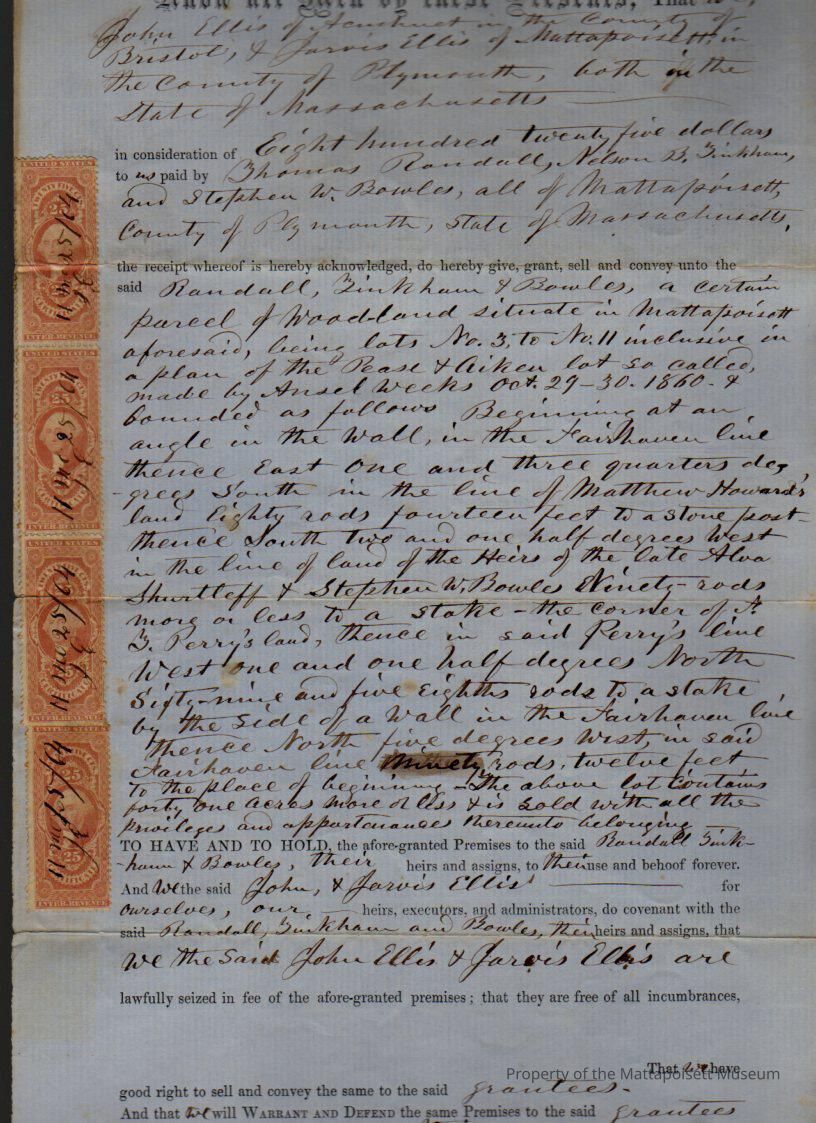 Know all Men by these Presents, That we,
John Ellis of Acushnet in the County of
Bristol, & Jarvis Ellis of Mattapoisett, in
the County of Plymouth, both in the
State of Massachusetts
in consideration of Eight hundred twenty five dollars
to us paid by Thomas Randall, Nelson B. Tinkham,
and Stephen W. Bowles, all of Mattapoisett,
County of Plymouth, State of Massachusetts,
the receipt whereof is hereby acknowledged, do hereby give, grant, sell and convey unto the
said Randall, Tinkham & Bowles, a certain
parcel of Woodland situate in Mattapoisett
aforesaid, being lots No. 3, to No. 11 inclusive in
a plan of the Pease & Aiken lot so called,
made by Ansel Weeks Oct. 29-30. 1860- &
bounded as follows Beginning at an
angle in the Wall, in the Fairhaven line
thence East One and three quarters deg
-grees South in the line of Matthew Howard's
land Eighty rods fourteen feet to a stone post-
thence South two and one half degrees West
in the line of land of the Heirs of the late Alva
Shurtleff & Stephen W. Bowles Ninety-rods
more or less to a stake - the corner of A.
T. Perry's land, thence in said Perry's line
West one and one half degrees North
Sixty-nine and five Eighths rods to a stake
by the Side of a Wall in the Fairhaven line
thence North five degrees West, in said
Fairhaven line Ninety rods, twelve feet
To the place of beginning - The above lot Contains
forty one acres more or less & is Sold with all the
privileges and appurtenances thereunto belonging
TO HAVE AND TO HOLD, the afore-granted Premises to the said Randall Tink-
-ham & Bowles, their heirs and assigns, to their use and behoof forever.
And We the said John, & Jarvis Ellis for
ourselves, our heirs, executors, and administrators, do covenant with the
said Randall, Tinkham and Bowles, their heirs and assigns, that
We the Said John Ellis & Jarvis Ellis are
lawfully seized in fee of the afore-granted premises; that they are free of all incumbrances,
That we have
good right to sell and convey the same to the said grantees.
And that we will WARRANT AND DEFEND the same Premises to the said grantees
UNITED STATES
25
INTER. REVENUE
UNITED STATES
25
INTER. REVENUE
UNITED STATES
25
INTER. REVENUE
25
INTER. REVENUE
Property of the Mattapoisett Museum